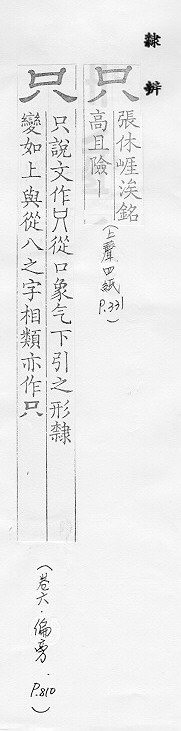 隸辨
只
張休崕涘銘
高且險丨
(上聲四紙 P.331)
只
只說文作𠮡從口象气下引之形隸
變如上與從八之字相類亦作只
(卷六·偏旁·P.810)